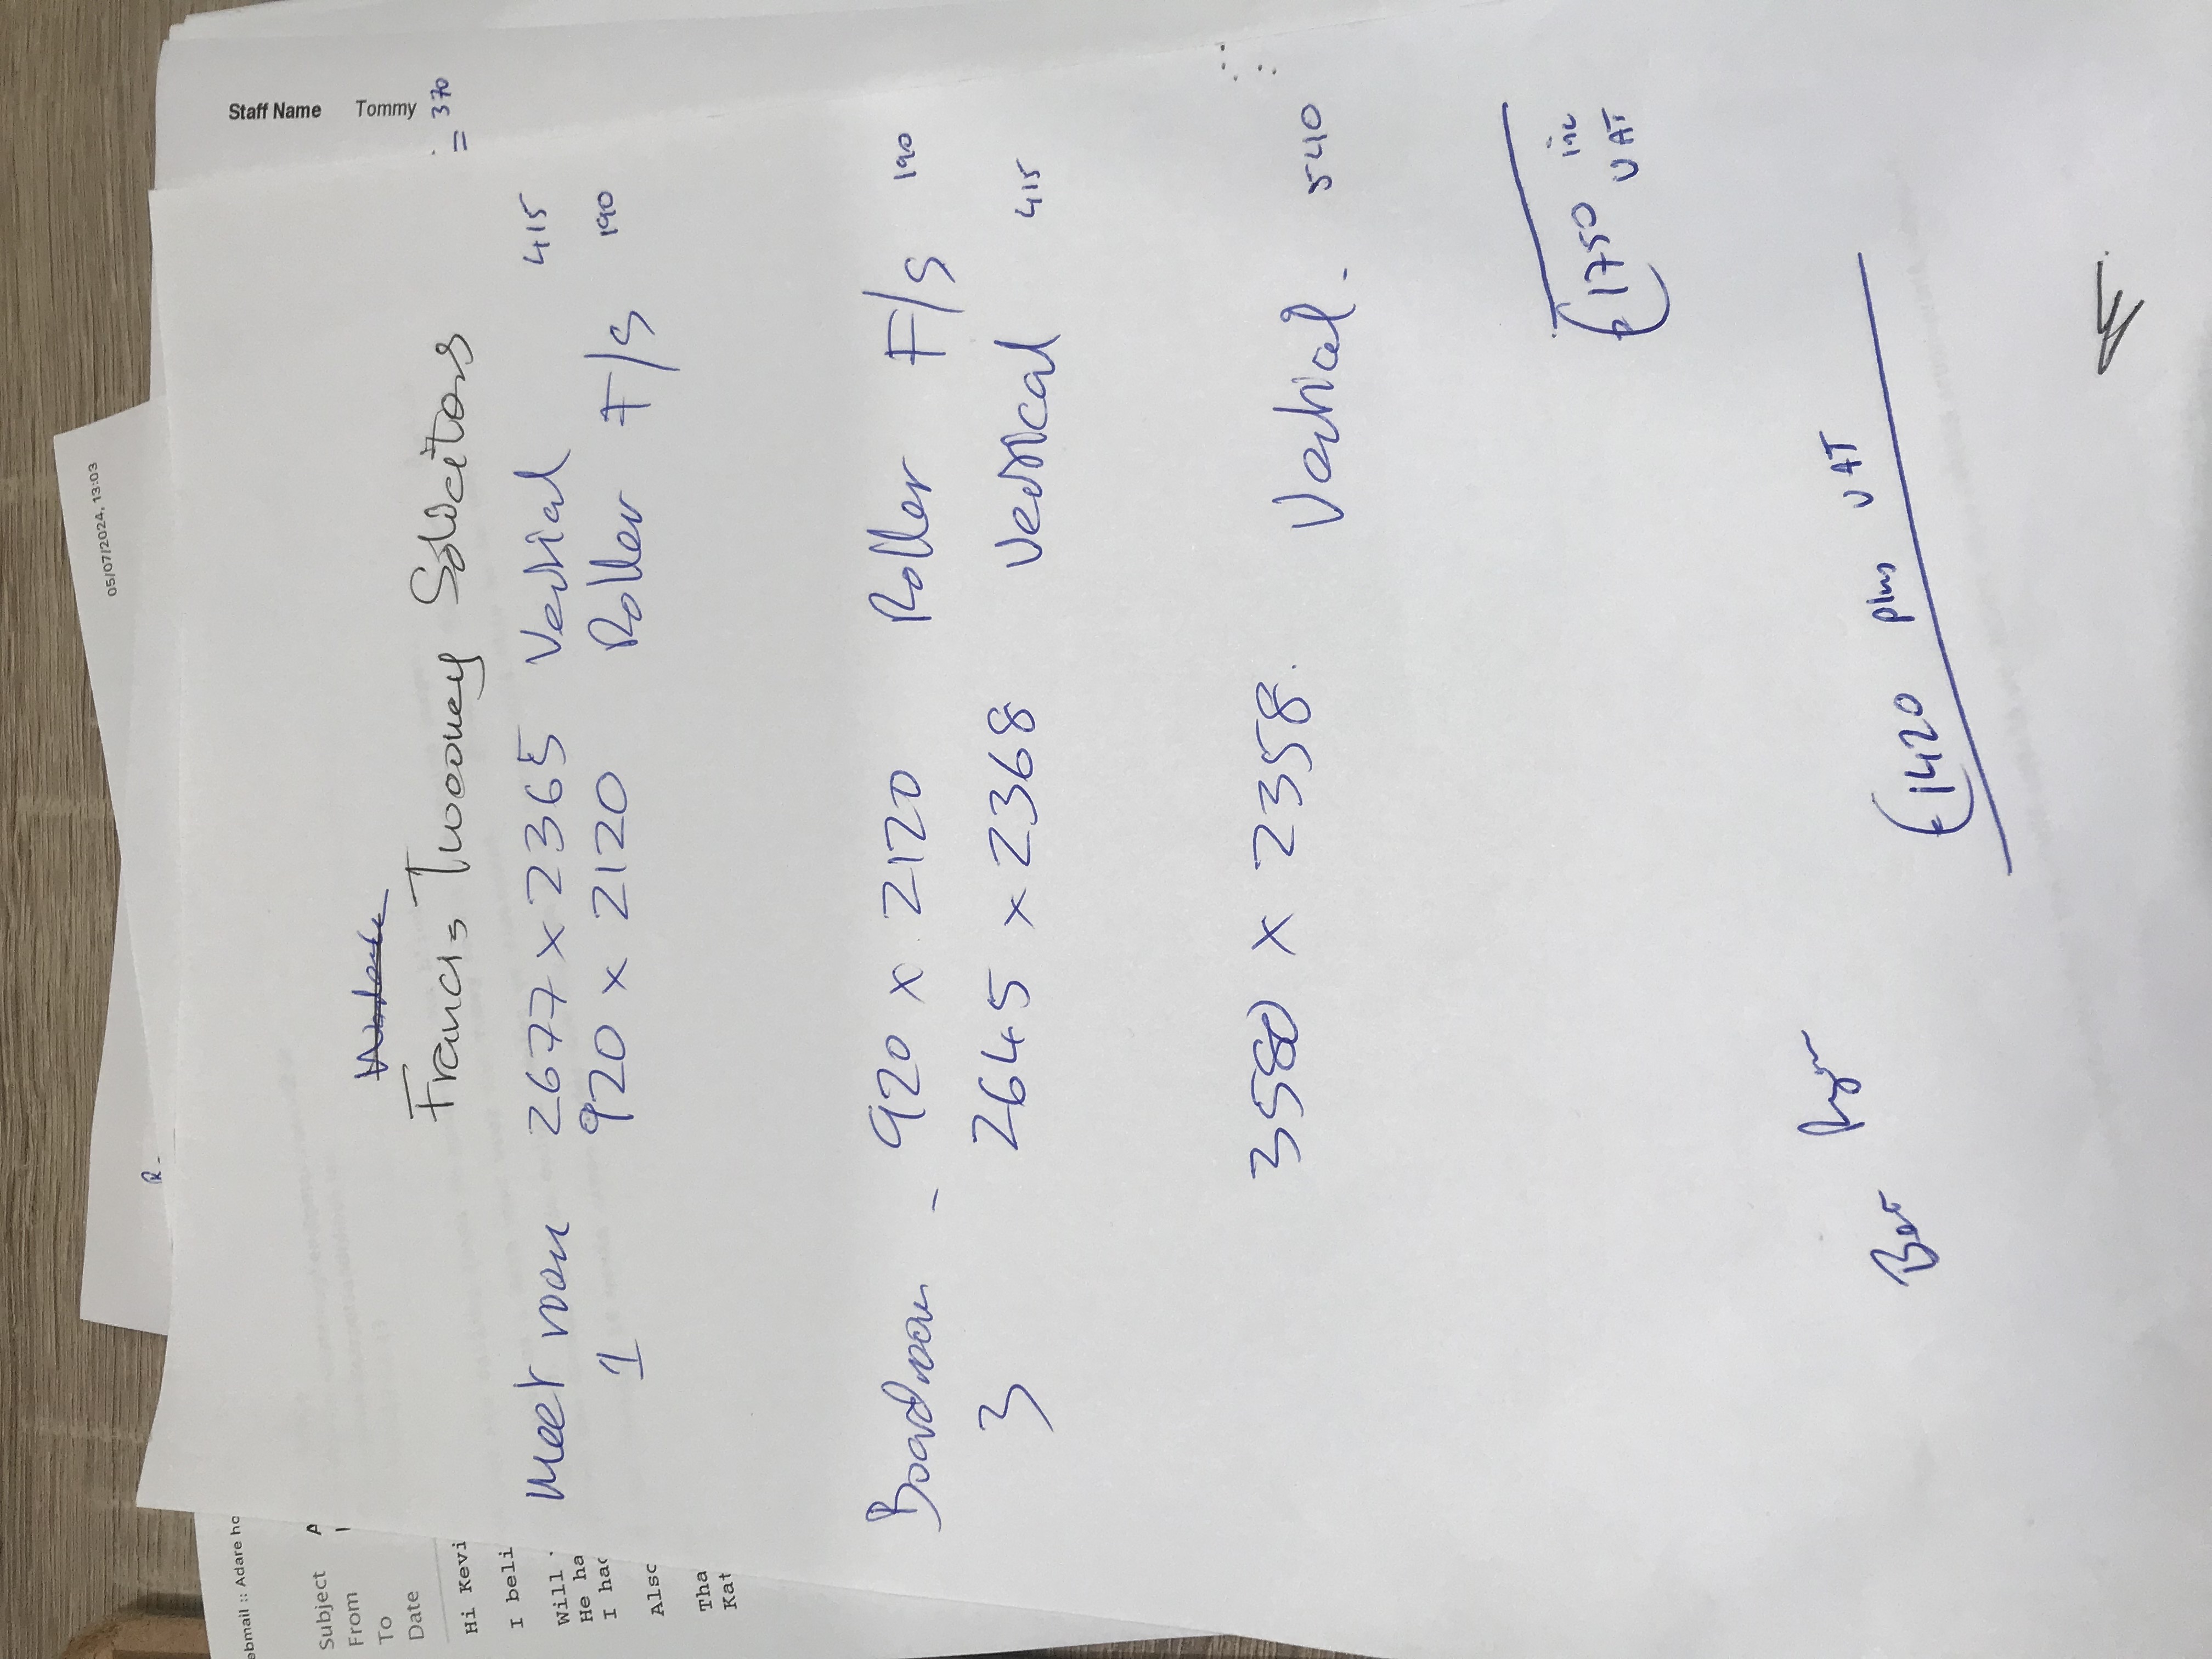 05/07/2024, 13:03
R-
Staff Name Tommy
= 370
Francis Twoomey Solicitors
Meet room 2677 x 2365 Vertical 415
1 920 x 2120 Roller F/S 190
Boardroom - 920 x 2120 Roller F/S 190
3 2645 x 2368 Vertical 415
3580 x 2358. Vertical. 540
€1750 inc VAT
€1420 plus VAT
ebmail :: Adare ho
Subject A
From
To
Date
Hi Kevi
I beli
Will
He ha
I had
Also
Tha
Kat